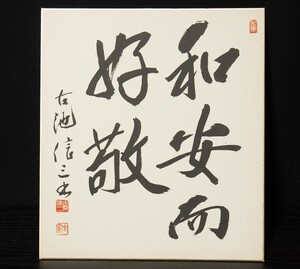 和安而
好敬
古池信三書